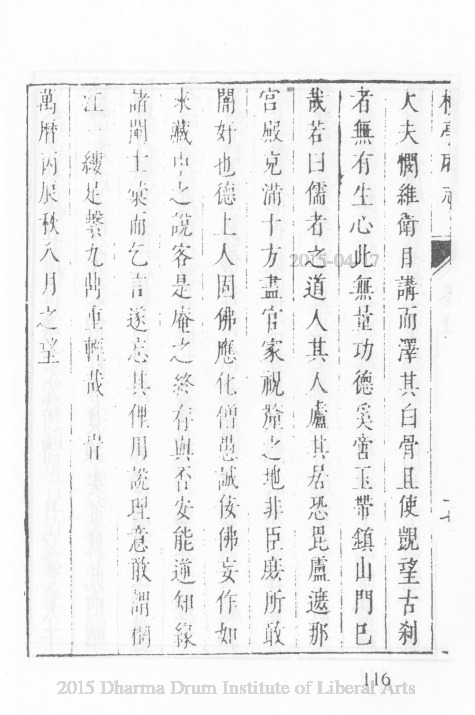 大夫憫維衛目講而澤其白骨且使覬望古刹
者無有生心此無量功德奚啻玉帶鎮山門已
哉若曰儒者之道人其人廬其居恐毘盧遮那
宮殿克滿十方盡官家祝釐之地非臣庶所敢
闇奸也德上人固佛應化僧愚誠佞佛妄作如
來藏中之說客是庵之終存與否安能逆知緣
諸聞士棠而乞言遂忘其俚用說理意敢謂桐
江一縷足繫九鼎重輕哉 旹
萬曆丙辰秋八月之望
116
2015-04-17
2015 Dharma Drum Institute of Liberal Arts